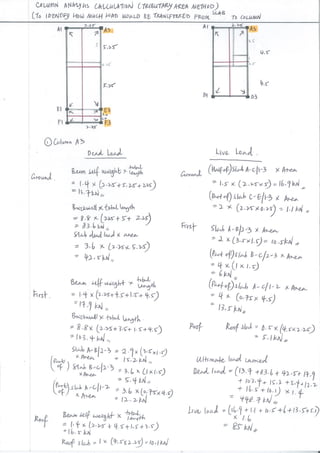 COLUMN ANALYSIS CALCULATION (TRIBUTARY AREA METHOD)
(TO IDENTIFY HOW MUCH LOAD WOULD BE TRANSFERRED FROM SLAB TO COLUMN
A1 2.25 A3
5.25
5.25
E1
F1
2.25
A1 2.25 A3
4.5
4.5
B1 B3
① Column A3
Dead Load
Ground Beam self weight × total length
= 1.4 × (2.25+5.25+2.25)
Brickwall × total length
= 8.8 × (2.25+5+ 2.25)
= 83.6kN
Slab dead load × area
= 3.6 × (2.25×5.25)
= 42.5kN
First. Beam self weight × total length
= 1.4 × (2.25+4.5+1.5+4.5)
= 17.9 kN
Brickwall × total length
= 8.8 × (2.25+3.5+1.5+4.5)
Slab A-B/2-3 × Area = 2.9 × (3.5×1.5)
= 15.2kN
(Part of) Slab B-C/2-3 × Area = 3.6 × (1×1.5)
= 5.4 kN
(Part of) Slab A-C/1-2 × Area = 3.6 × (0.75×4.5)
= 12.2kN
Roof Beam self weight × total length
= 1.4 × (2.25 + 4.5+1.5+2.5)
Roof slab = 1 × (4.5×2.25) = 10.1kN
Live Load
Ground (Half of) Slab A-C/1-3 × Area
= 1.5 × (2.25×5) = 16.9kN
(Part of) Slab C-E/1-3 × Area
= 2 × (2.25×0.25) = 1.1kN
First Slab A-B/2-3 × Area
= 2 × (3.5×1.5) = 10.5kN
(Part of) Slab B-C/2-3 × Area
= 4 × (1 × 1.5)
= 6kN
(Part of) Slab A-C/1-2 × Area
= 4 × (0.75 × 4.5)
= 13.5kN
Roof Roof slab = 0.5 × (4.5×2.25)
= 5.1kN
Ultimate load carried
× 1.4
× 1.6
= 85 kN